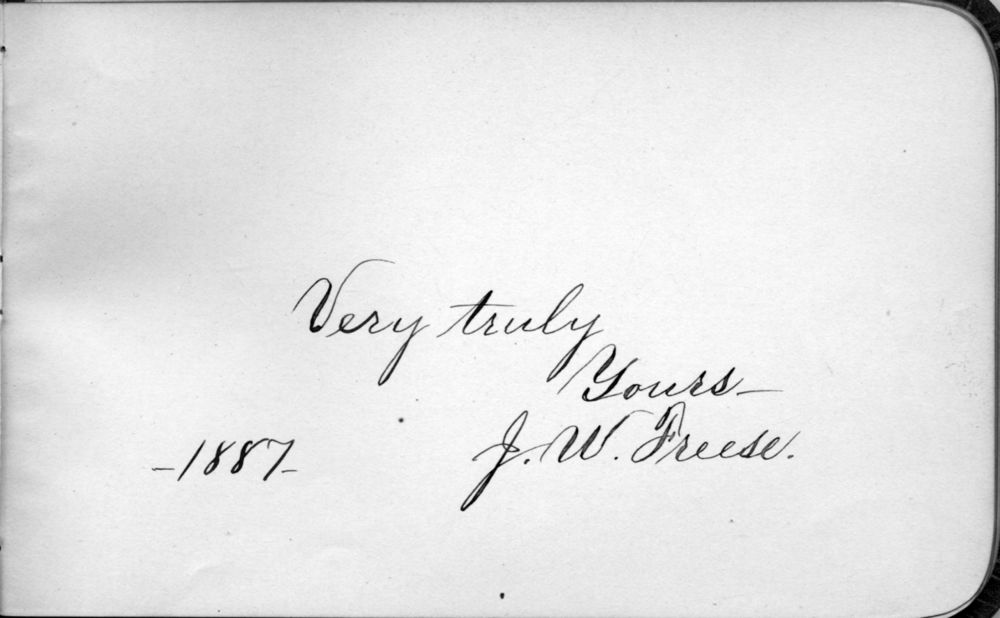 Very truly
Yours—
J. W. Freese.
–1887–